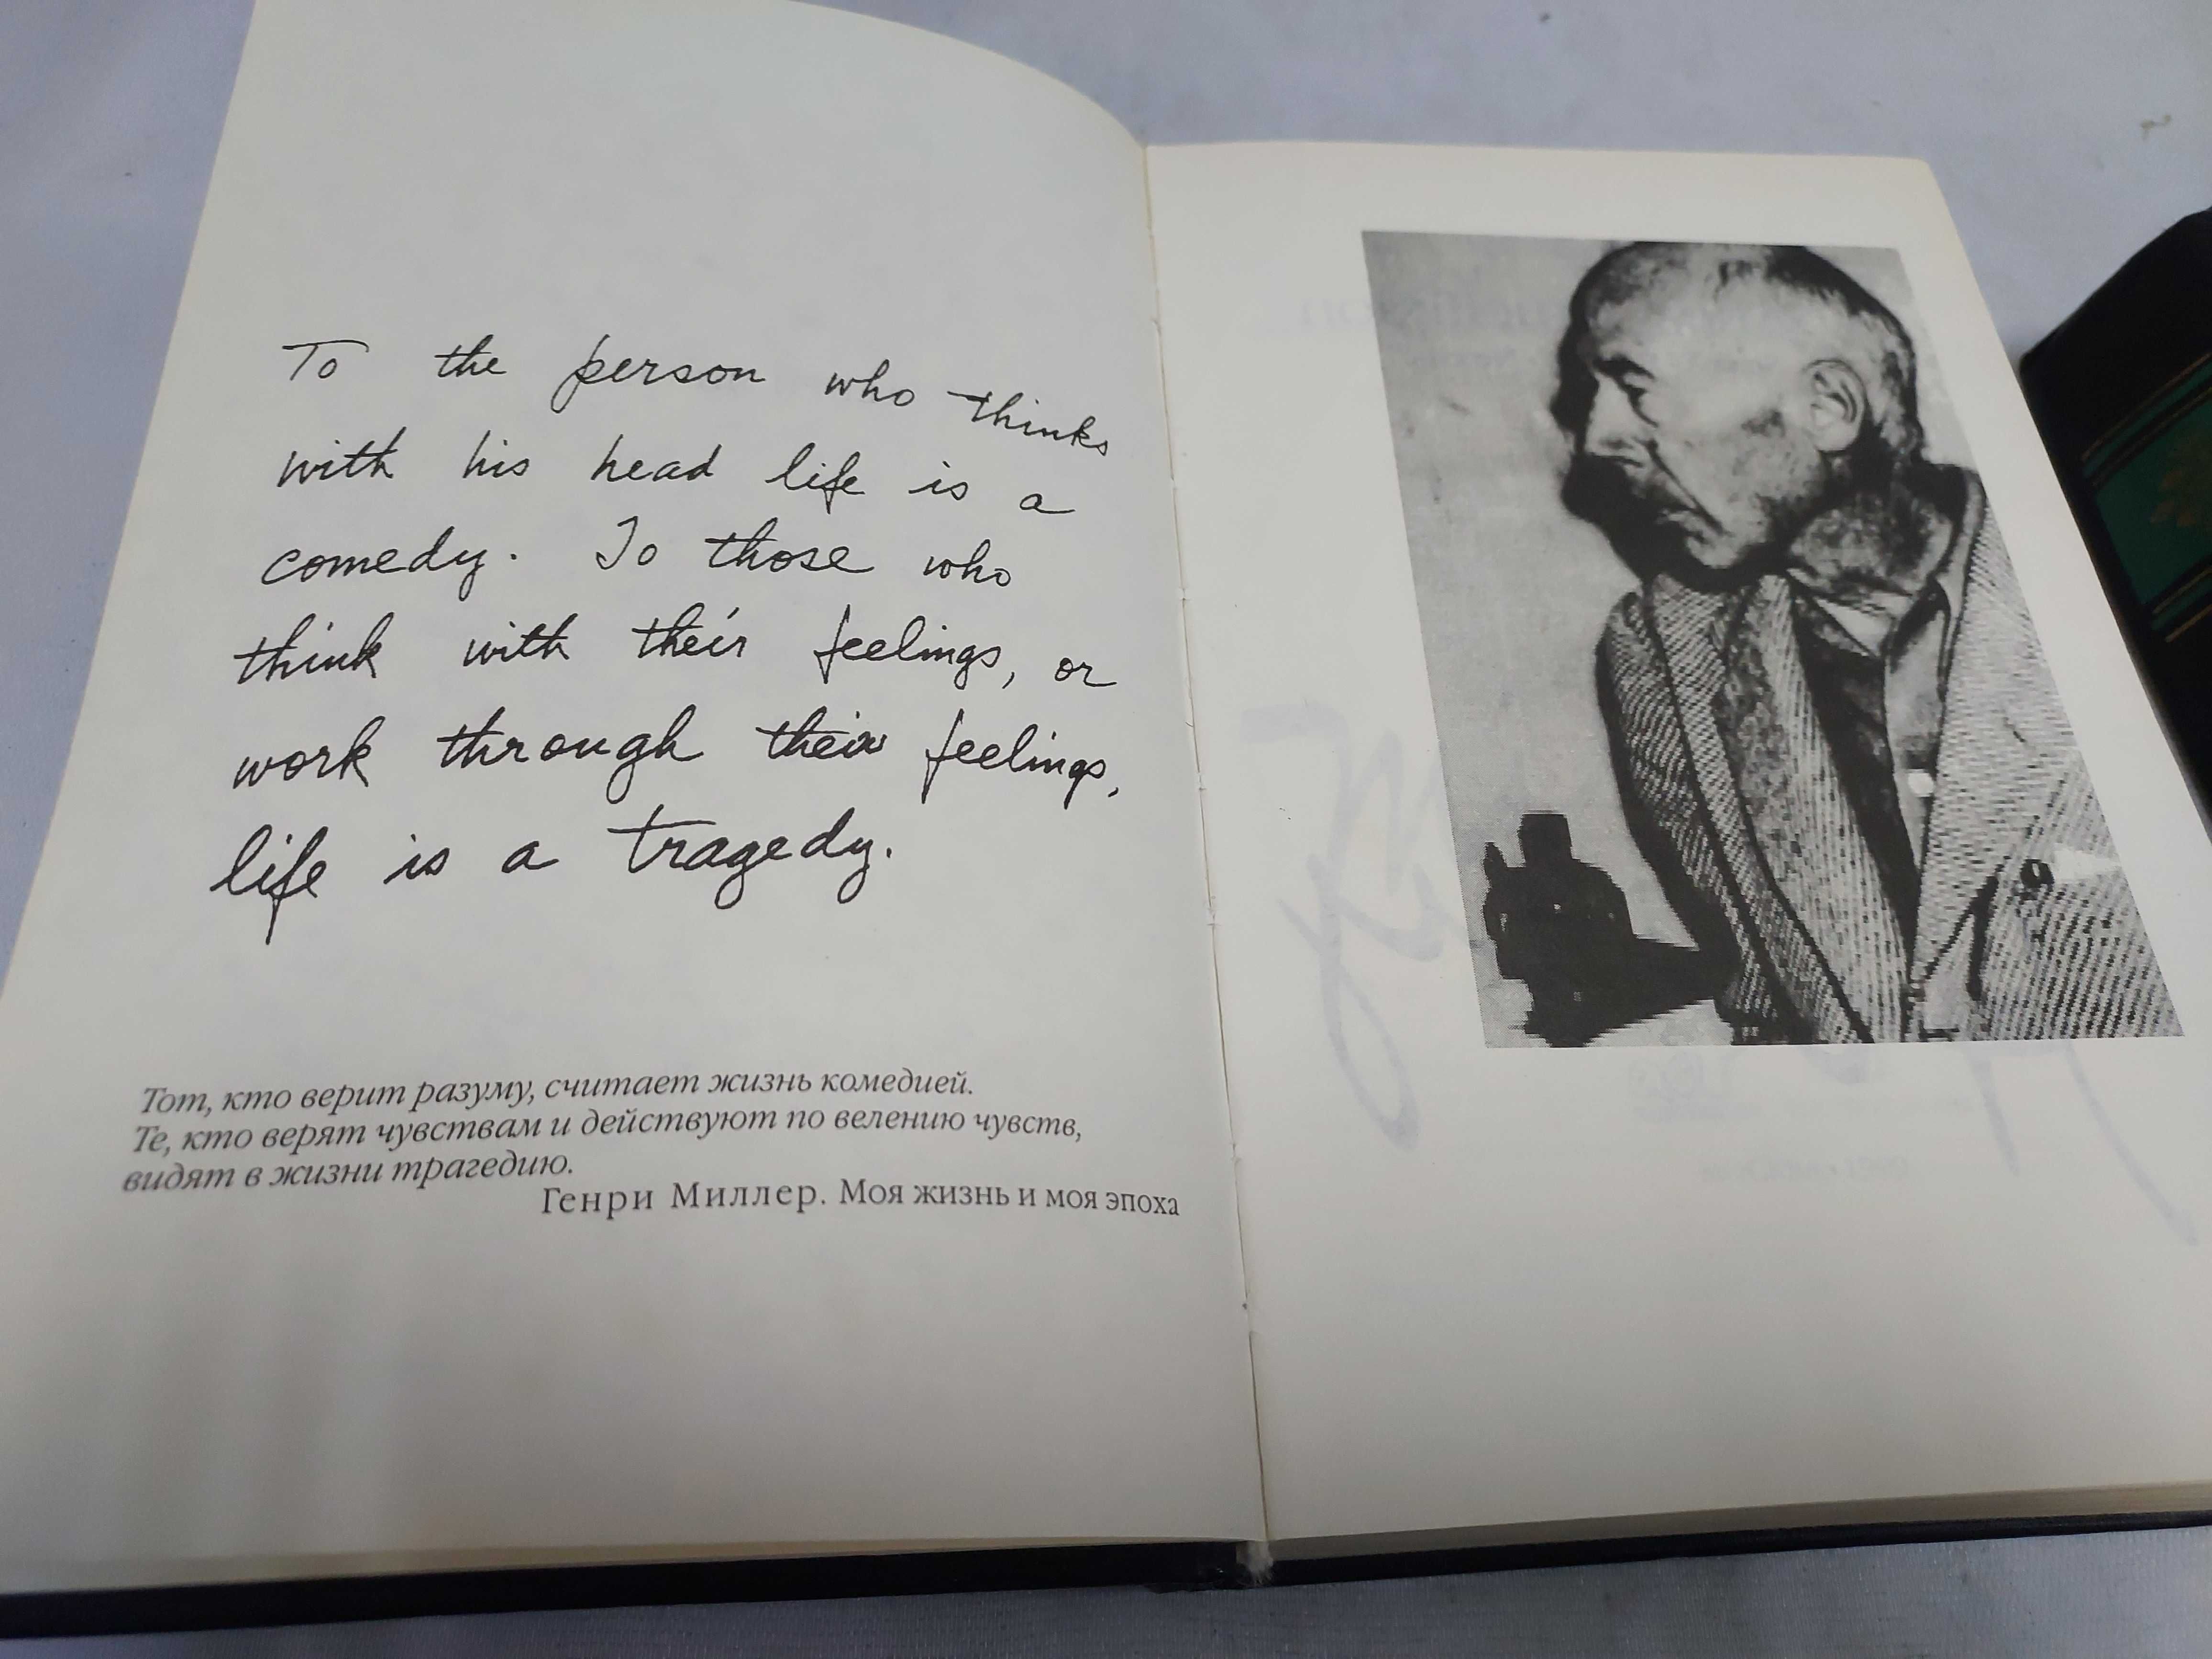 To the person who thinks
with his head life is a
comedy. To those who
think with their feelings, or
work through their feelings,
life is a tragedy.
Тот, кто верит разуму, считает жизнь комедией.
Те, кто верят чувствам и действуют по велению чувств,
видят в жизни трагедию.
Генри Миллер. Моя жизнь и моя эпоха